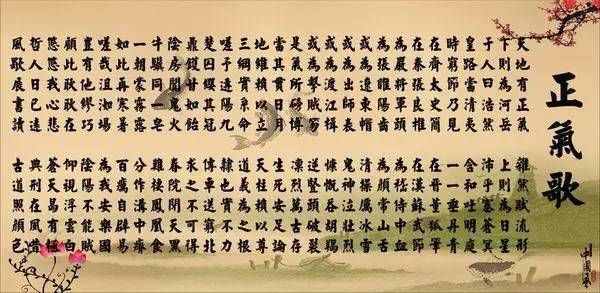 正氣歌
天地有正氣
雜然賦流形
下則為河岳
上則為日星
于人曰浩然
沛乎塞蒼冥
皇路當清夷
含和吐明庭
時窮節乃見
一一垂丹青
在齊太史簡
在晉董狐筆
在秦張良椎
在漢蘇武節
為嚴將軍頭
為嵇侍中血
為張睢陽齒
為顏常山舌
或為遼東帽
清操厲冰雪
或為出師表
鬼神泣壯烈
或為渡江楫
慷慨吞胡羯
或為擊賊笏
逆豎頭破裂
是氣所磅礴
凜烈萬古存
當其貫日月
生死安足論
地維賴以立
天柱賴以尊
三綱實系命
道義為之根
嗟予遘陽九
隸也實不力
楚囚纓其冠
傳車送窮北
鼎鑊甘如飴
求之不可得
陰房闃鬼火
春院閟天黑
牛驥同一皂
雞棲鳳凰食
一朝蒙霧露
分作溝中瘠
如此再寒暑
百癘自辟易
嗟哉沮洳場
為我安樂國
豈有他繆巧
陰陽不能賊
顧此耿耿在
仰視浮雲白
悠悠我心悲
蒼天曷有極
哲人日已遠
典刑在夙昔
風檐展書讀
古道照顏色
中國風